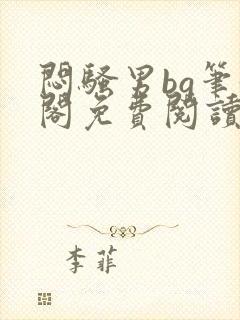 悶騷男bg筆
閣免費閱讀
李菲